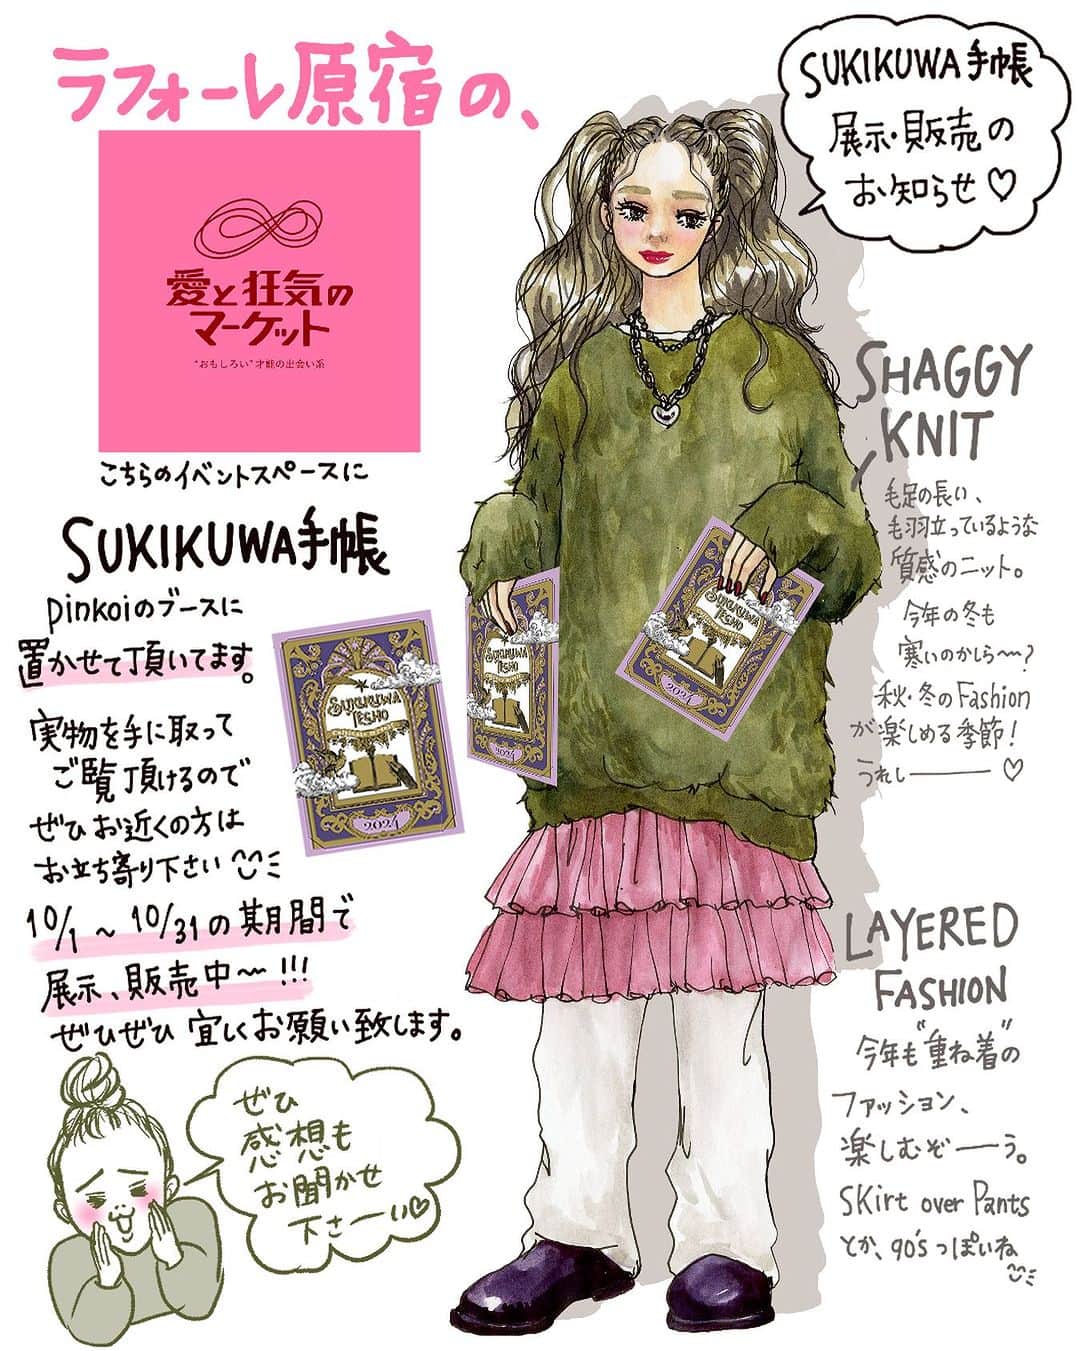 ラフォーレ原宿の、
愛と狂気の
マーケット
"おもしろい"才能の出会い系
こちらのイベントスペースに
SUKIKUWA手帳
pinkoiのブースに
置かせて頂いてます。
実物を手に取って
ご覧頂けるので
ぜひお近くの方は
お立ち寄り下さい
10/1～10/31の期間で
展示、販売中〜!!!
ぜひぜひ宜しくお願い致します。
ぜひ
感想も
お聞かせ
下さーい♡
SUKIKUWA
TECHO
2024
SUKIKUWA
TECHO
2024
SUKIKUWA
TECHO
2024
SUKIKUWA手帳
展示・販売の
お知らせ♡
SHAGGY
KNIT
毛足の長い、
毛羽立っているような
質感のニット。
今年の冬も
寒いのかしら〜?
秋・冬のFashion
が楽しめる季節!
うれしー♡
LAYERED
FASHION
今年も"重ね着"の
ファッション、
楽しむぞーう。
Skirt over Pants
とか、90'sっぽいね